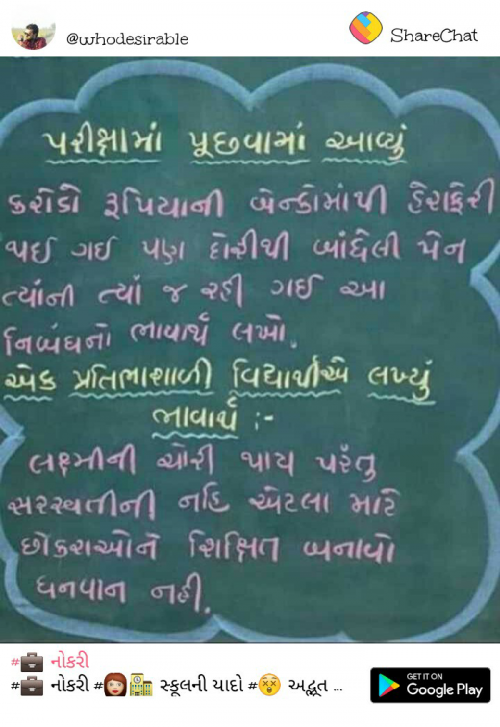 @whodesirable
ShareChat
પરીક્ષામાં પૂછવામાં આવ્યું
કરોડો રૂપિયાની બેન્કોમાંથી હેરાફેરી
થઈ ગઈ પણ દોરીથી બાંધેલી પેન
ત્યાંની ત્યાં જ રહી ગઈ આ
નિબંધનો ભાવાર્થ લખો.
એક પ્રતિભાશાળી વિદ્યાર્થીએ લખ્યું
ભાવાર્થ :-
લક્ષ્મીની ચોરી થાય પરંતુ
સરસ્વતીની નહિ એટલા માટે
છોકરાઓને શિક્ષિત બનાવો
ધનવાન નહી.
#💼 નોકરી
#💼 નોકરી #👩🏫 સ્કૂલની યાદો #😲 અદ્ભૂત ...
GET IT ON
Google Play